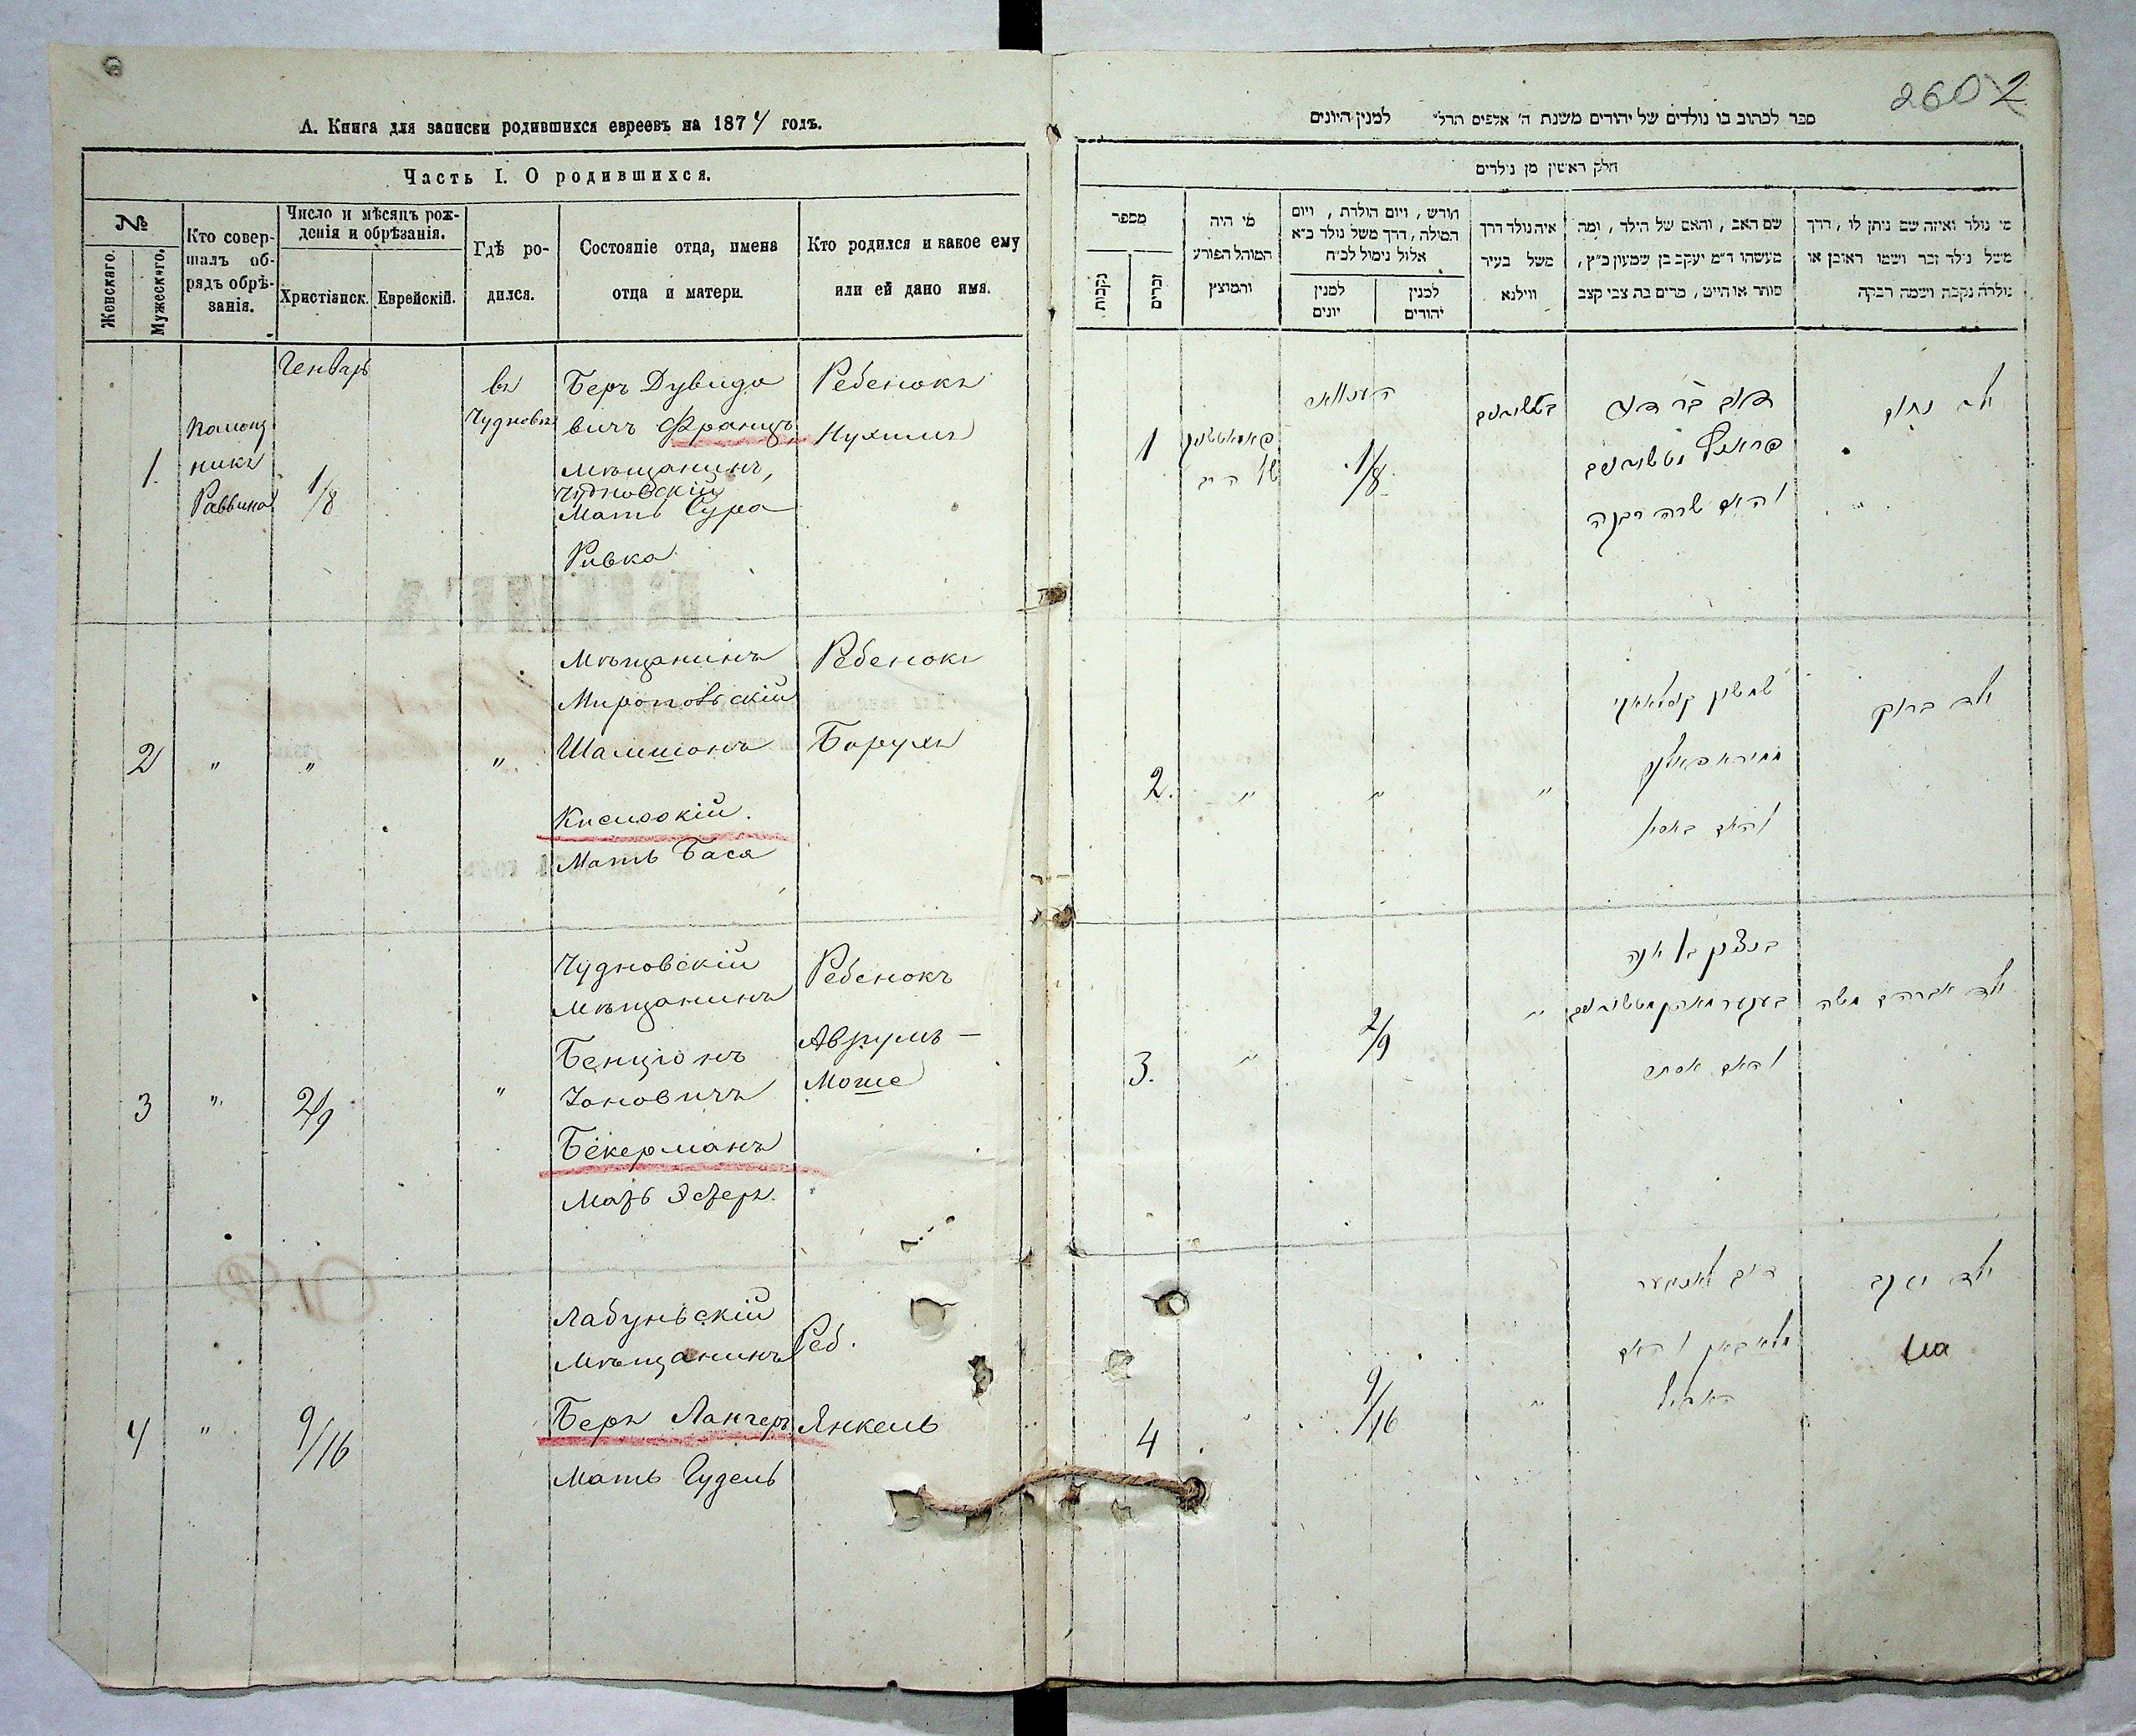 А. Книга для записки родившихся евреевъ на 1874 годъ.
Часть I. О родившихся.
№
Женскаго.
Мужескаго.
Кто совер-
шалъ об-
рядъ обрѣ-
занія.
Число и мѣсяцъ рож-
денія и обрѣзанія.
Христіанск.
Еврейскій.
Гдѣ ро-
дился.
Состояніе отца, имена
отца и матери.
Кто родился и какое ему
или ей дано имя.
Генварь
1.
Помощ
никъ
Раввина
1/8
въ
Чудновѣ
Беръ Дувидо
вичъ Францъ
Мѣщанинъ,
Чудновскій
Мать Сура
Ривка
Ребенокъ
Нухимъ
2
"
"
"
Мѣщанинъ
Миропольскій
Шамшонъ
Мать Бася
Ребенокъ
Борухъ
3
"
2/9
"
Чудновскій
Мѣщанинъ
Бенціонъ
Іоновичъ
Бекерманъ
Мать Эстеръ
Ребенокъ
Аврумъ –
Моше
4
"
9/16
Лабуньскій
Мѣщанинъ
Беръ Лангеръ
Мать Гудель
Реб.
Янкель
2602
ספר לכתוב בו נולדים של יהודים משנת ה' אלפים תרל" למנין היונים
חלק ראשון מן נולדים
מספר
נקבות
זכרים
מי היה
המוהל הפורע
והמוצץ
חורש, ויום הולדת, ויום
המילה, דרך משל נולד כ"א
אלול נימול לכ"ח
למנין
יונים
למנין
יהודים
איה נולד דרך
משל בעיר
ווילנא
שם האב, והאם של הילד, ומה
מעשהו ד"מ יעקב בן שמעון כ"ץ,
סוחר או חייט, מרים בת צבי קצב
מי נולד ואיזה שם ניתן לו, דרך
משל נולד זכר ושמו ראובן או
נולדה נקבה ושמה רבקה
1
1/8
והאם שרה רבקה
ילד נחום
2.
"
"
"
והאם באסיא
ילד ברוך
3.
"
2/9
"
בנציון בן יונה
והאם אסתר
ילד אברהם משה
4
"
9/16
"
ילד יעקב